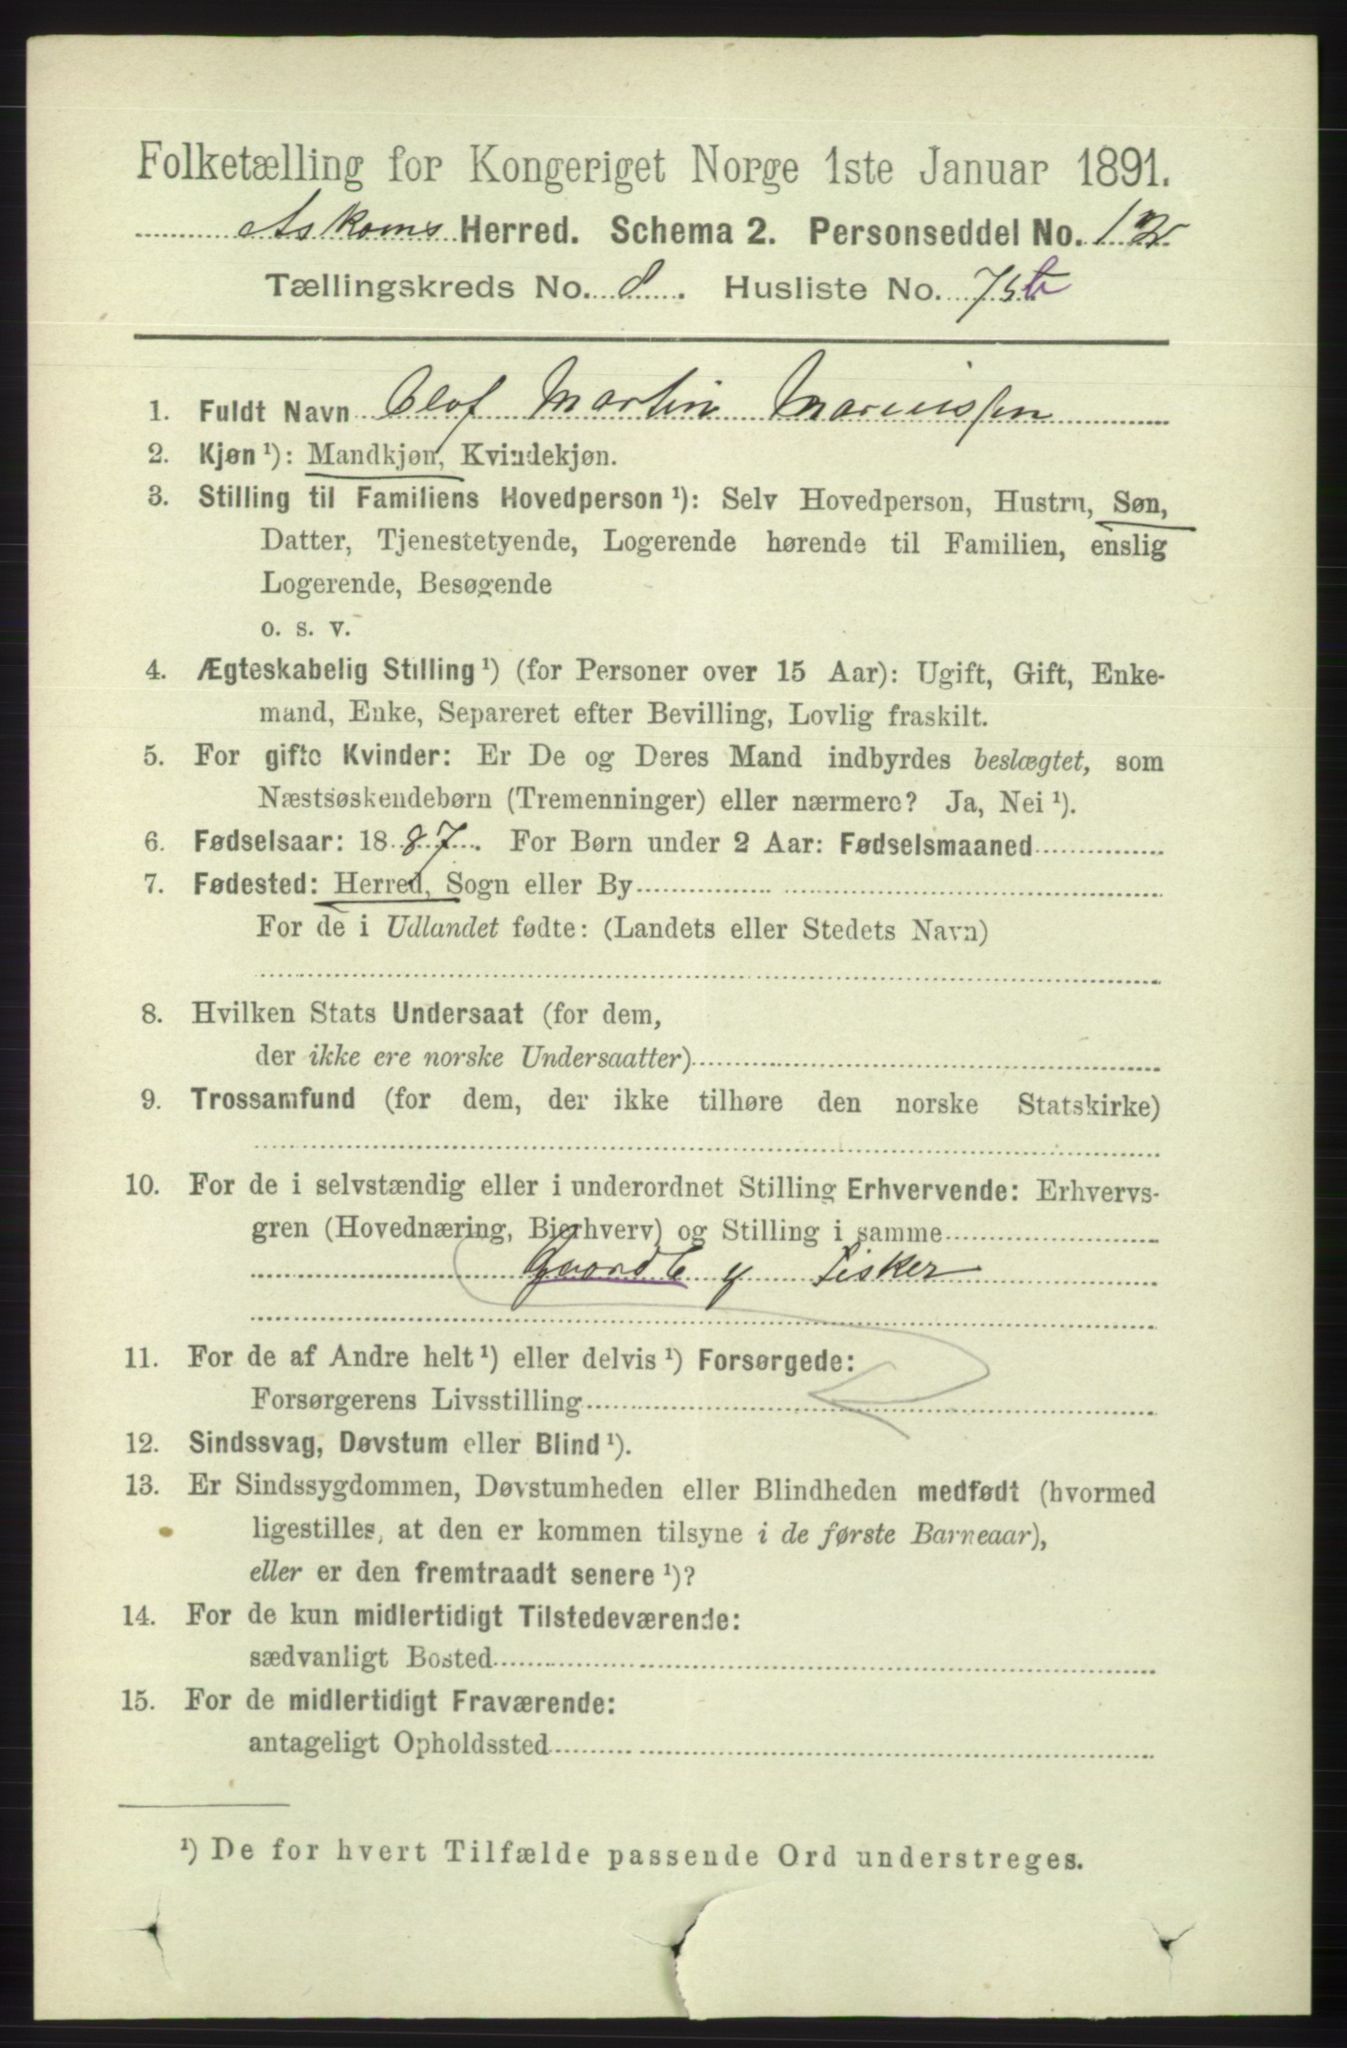 Folketælling for Kongeriget Norge 1ste Januar 1891.
Askøens Herred. Schema 2. Personseddel No. 12
Tællingskreds No. 8. Husliste No. 75b
1. Fuldt Navn Olof Martin Mariussen
2. Kjøn ¹): Mandkjøn, Kvindekjøn.
3. Stilling til Familiens Hovedperson ¹): Selv Hovedperson, Hustru, Søn,
Datter, Tjenestetyende, Logerende hørende til Familien, enslig
Logerende, Besøgende
o. s. v.
4. Ægteskabelig Stilling ¹) (for Personer over 15 Aar): Ugift, Gift, Enke-
mand, Enke, Separeret efter Bevilling, Lovlig fraskilt.
5. For gifte Kvinder: Er De og Deres Mand indbyrdes beslægtet, som
Næstsøskendebørn (Tremenninger) eller nærmere? Ja, Nei ¹).
6. Fødselsaar: 1887. For Børn under 2 Aar: Fødselsmaaned
7. Fødested: Herred, Sogn eller By
For de i Udlandet fødte: (Landets eller Stedets Navn)
8. Hvilken Stats Undersaat (for dem,
der ikke ere norske Undersaatter)
9. Trossamfund (for dem, der ikke tilhøre den norske Statskirke)
10. For de i selvstændig eller i underordnet Stilling Erhvervende: Erhvervs-
gren (Hovednæring, Bierhverv) og Stilling i samme
Gaardb y Fisker
11. For de af Andre helt ¹) eller delvis ¹) Forsørgede:
Forsørgerens Livsstilling
12. Sindssvag, Døvstum eller Blind ¹).
13. Er Sindssygdommen, Døvstumheden eller Blindheden medfødt (hvormed
ligestilles, at den er kommen tilsyne i de første Barneaar),
eller er den fremtraadt senere ¹)?
14. For de kun midlertidigt Tilstedeværende:
sædvanligt Bosted
15. For de midlertidigt Fraværende:
antageligt Opholdssted
¹) De for hvert Tilfælde passende Ord understreges.